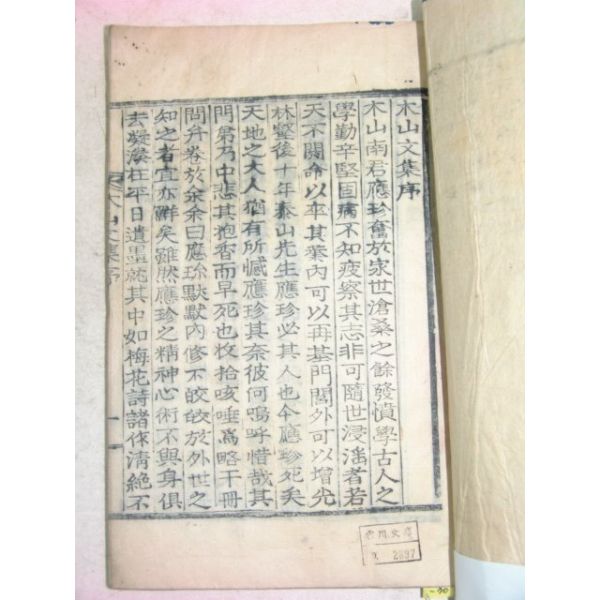 木山文集序
木山南君應珍奮於家世滄桑之餘發憤學古人之
學勤辛堅固病不知疲察其志非可隨世浸滛者若
天不閼命以卒其業內可以再基門閭外可以增光
林壑後十年泰山先生應珍必其人也今應珍死矣
天地之大人猶有所憾應珍其奈彼何嗚呼惜哉其
門弟乃中悲其抱香而早死也收拾咳唾爲略干冊
問弁卷於余余曰應珍默默內修不皎皎於外世之
知之者宜亦鮮矣雖然應珍之精神心術不與身俱
去凝湊在平日遺墨就其中如梅花詩諸作淸絶不
木山文集序
一
2897